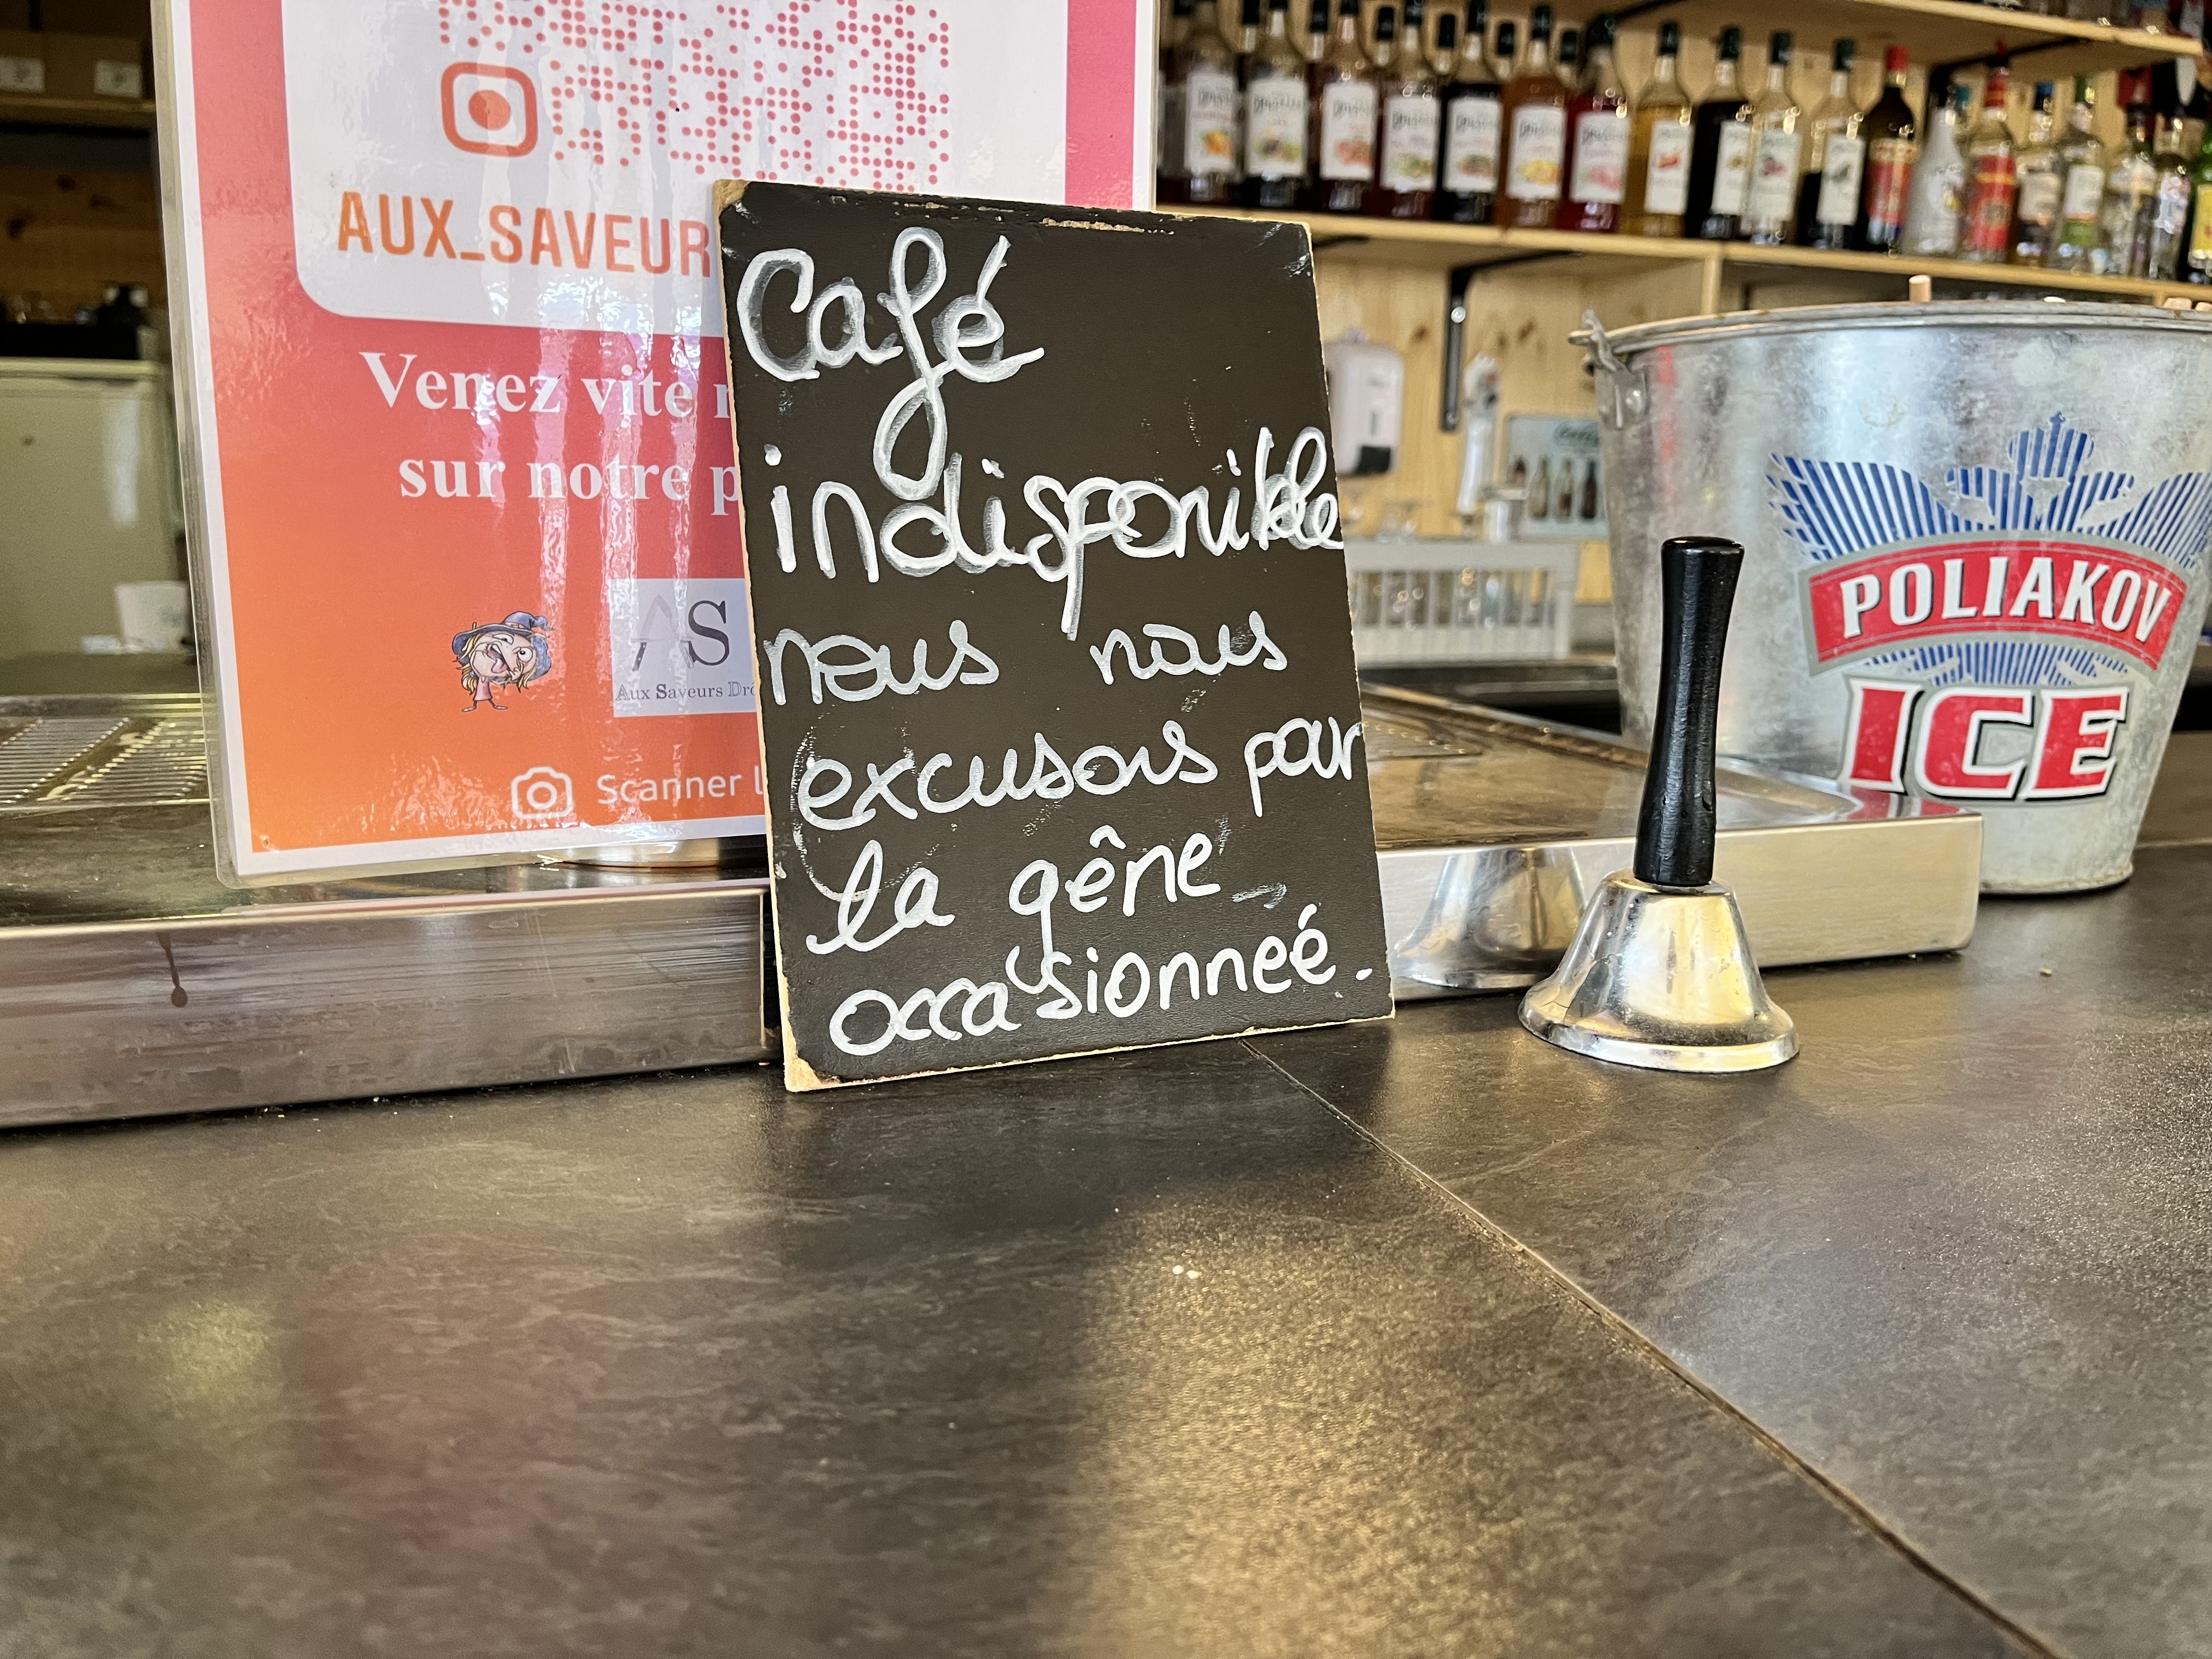 AUX_SAVEUR
Venez vite
sur notre
AS
Aux Saveurs
Scanner
Café
indisponible
nous nous
excusons par
la gêne
occasionneé.
POLIAKOV
ICE